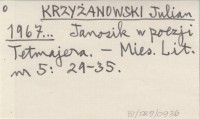 KRZYŻANOWSKI Julian
1967... Janosik w poezji
Tetmajera. – Mies. Lit.
nr 5: 29-35.